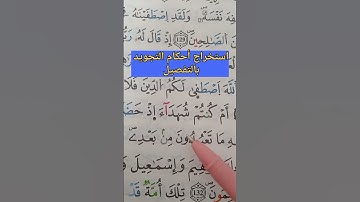 نَفْسَهُۥ وَلَقَدِ اِصْطَفَيْنَٰهُ
اَلصَّٰلِحِينَ 129 إِذْ قَالَ لَهُۥ
استخراج أحكام التجويد
بالتفصيل
اَللَّهَ اَصْطَفَىٰ لَكُمُ الدِّينَ فَلَا
أَمْ كُنتُمْ شُهَدَآءَ إِذْ حَضَ
مَا تَعْبُدُونَ مِنۢ بَعْدِے
وَإِسْمَٰعِيلَ
132 تِلْكَ أُمَّةٌ قَدْ